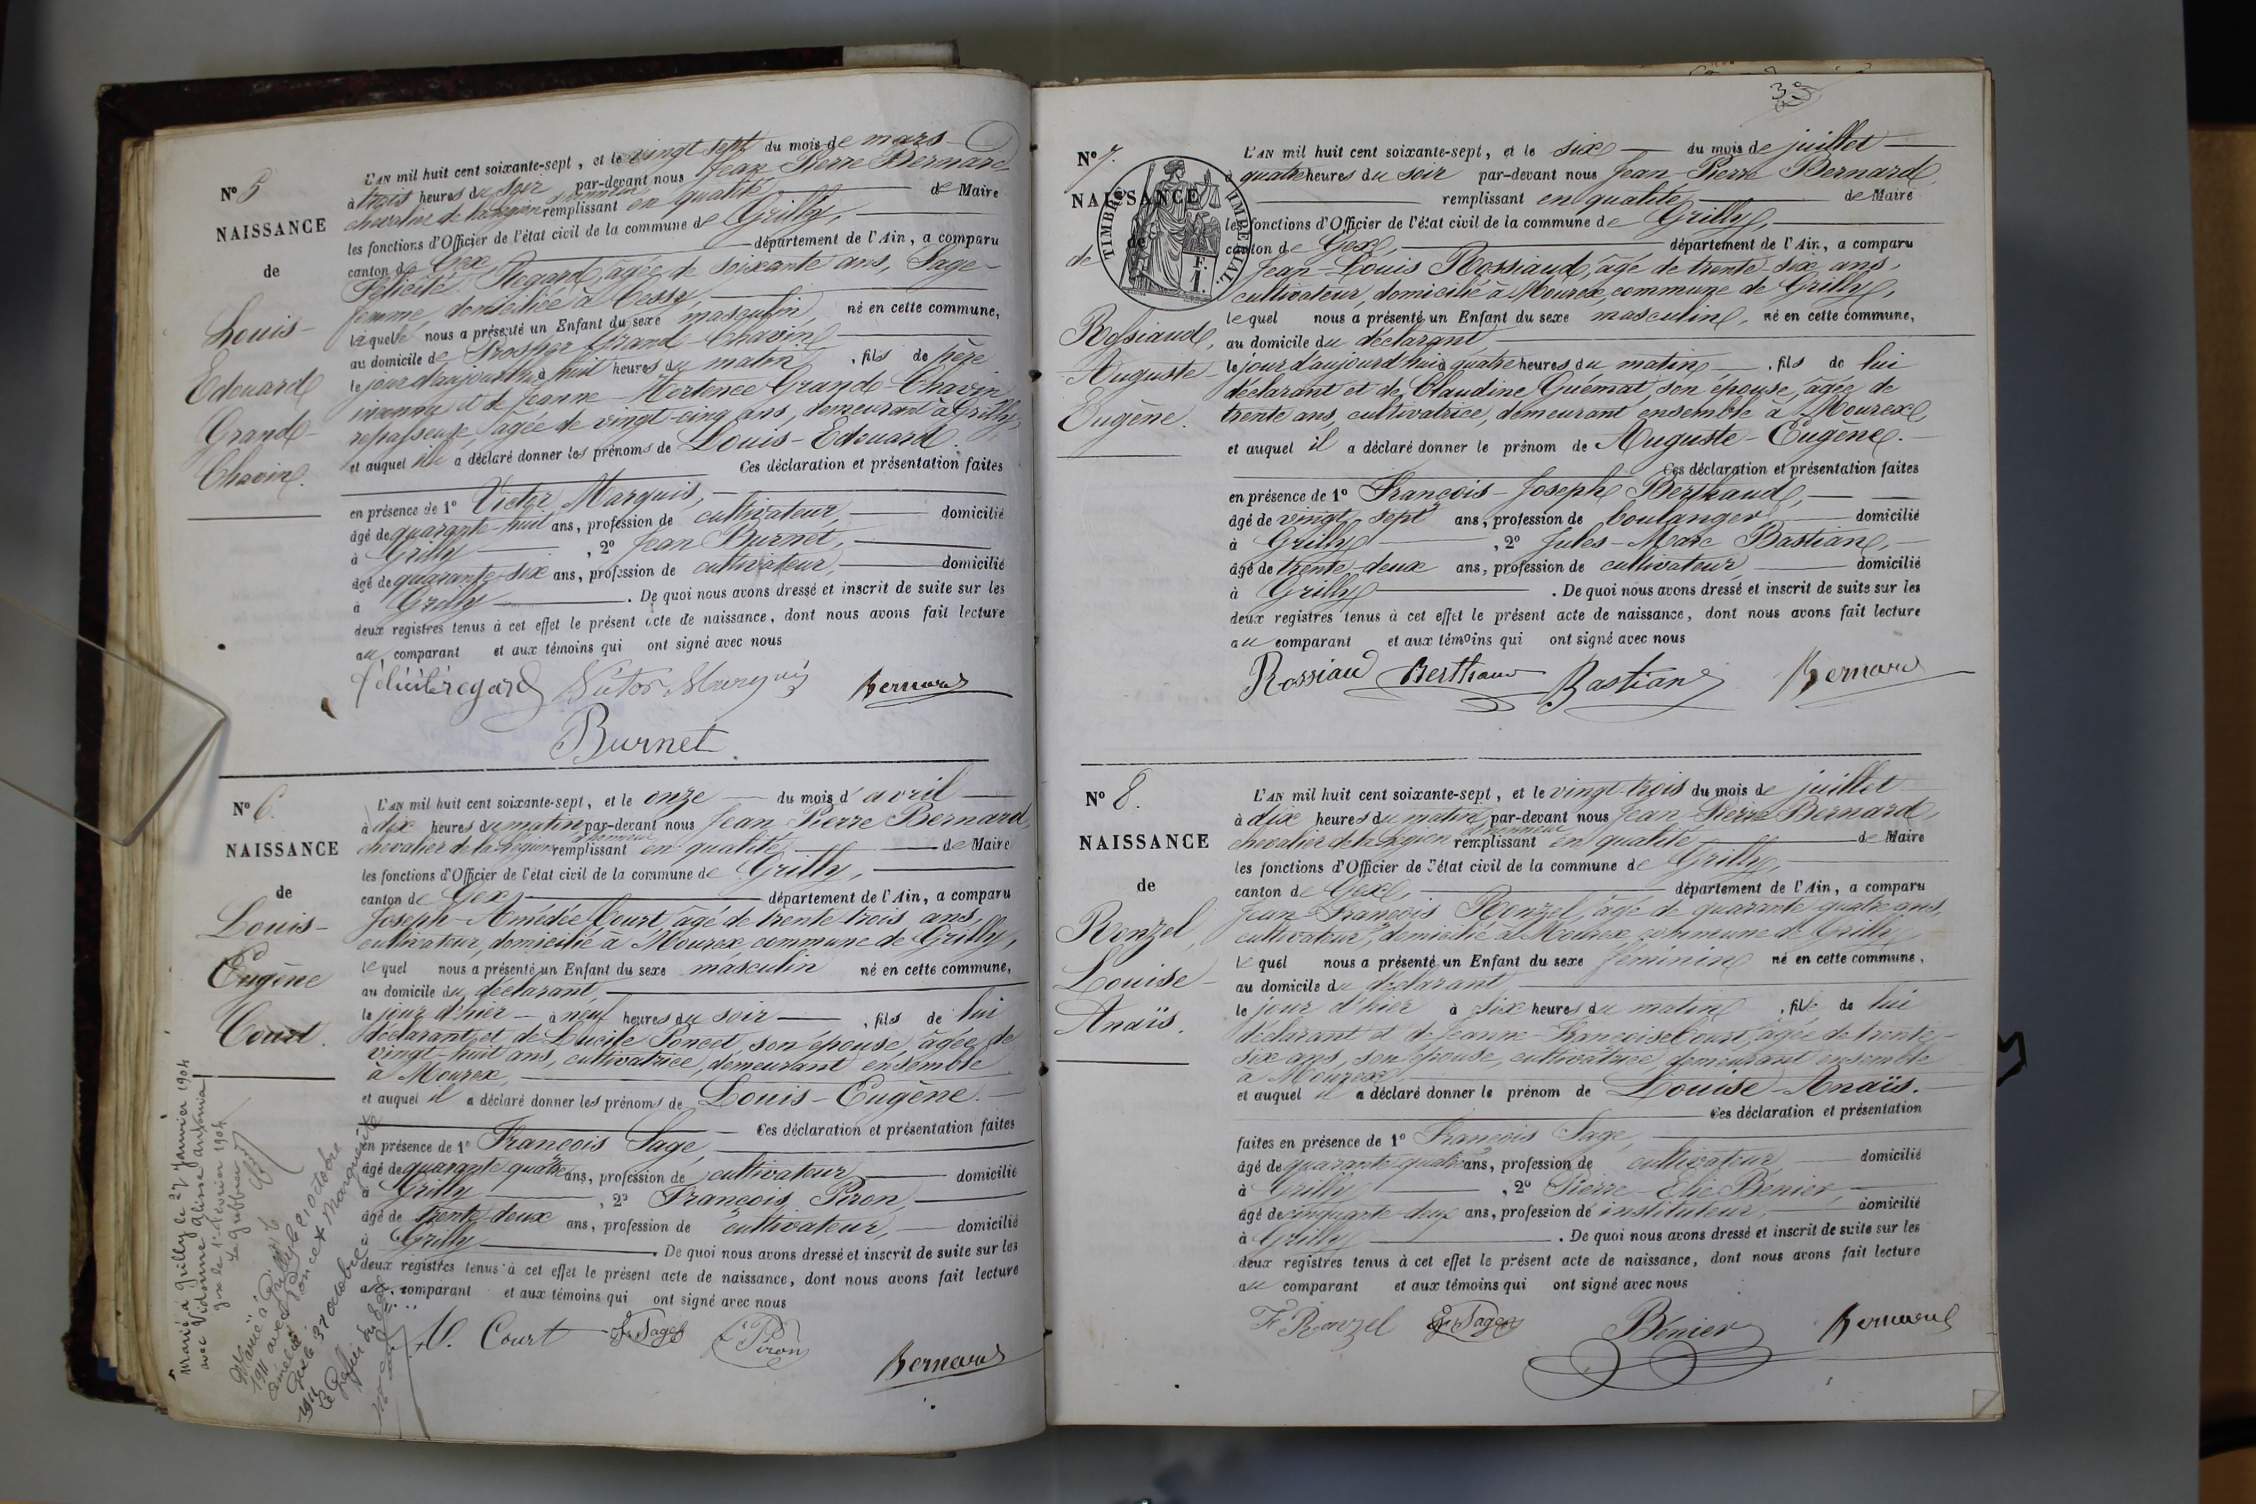 N° 5
NAISSANCE
de
Louis-
Edouard
Grand-
Chavin.
L'AN mil huit cent soixante-sept, et le vingt sept du mois de mars
à trois heures du soir par-devant nous Jean Pierre Bernard
chevalier de la légion d'honneur remplissant en qualité de Maire
les fonctions d'Officier de l'état civil de la commune de Grilly,
canton de Gex département de l'Ain, a comparu
Félicité Regard, âgée de soixante ans, Sage-
femme, domiciliée à Cessy,
laquelle nous a présenté un Enfant du sexe masculin, né en cette commune,
au domicile de Prosper Grand-Chavin
le jour d'aujourd'hui à huit heures du matin, fils de père
inconnu et de Jeanne-Hortence Grand-Chavin
repasseuse, âgée de vingt-cinq ans, demeurant à Grilly,
et auquel a déclaré donner les prénoms de Louis-Edouard.
Ces déclaration et présentation faites
en présence de 1° Victor Marquis,
âgé de quarante-huit ans, profession de cultivateur, domicilié
à Grilly, 2° Jean Burnet,
âgé de quarante-six ans, profession de cultivateur, domicilié
à Grilly. De quoi nous avons dressé et inscrit de suite sur les
deux registres tenus à cet effet le présent acte de naissance, dont nous avons fait lecture
au comparant et aux témoins qui ont signé avec nous
félicité regard Victor Marquis Bernard
Burnet
N° 6.
NAISSANCE
de
Louis-
Eugène
Court.
L'AN mil huit cent soixante-sept, et le onze du mois d'avril
à dix heures du matin par-devant nous Jean Pierre Bernard,
chevalier de la Légion d'honneur remplissant en qualité de Maire
les fonctions d'Officier de l'état civil de la commune de Grilly,
canton de Gex, département de l'Ain, a comparu
Joseph-Amédée Court âgé de trente trois ans,
cultivateur, domicilié à Mourex commune de Grilly,
lequel nous a présenté un Enfant du sexe masculin né en cette commune,
au domicile du déclarant,
le jour d'hier à neuf heures du soir, fils de lui
déclarant et de Lucile Poncet son épouse, âgée de
vingt-huit ans, cultivatrice, demeurant ensemble
à Mourex,
et auquel il a déclaré donner les prénoms de Louis-Eugène.
Ces déclaration et présentation faites
en présence de 1° François Sage,
âgé de quarante quatre ans, profession de cultivateur domicilié
à Grilly, 2° François Piron,
âgé de trente-deux ans, profession de cultivateur, domicilié
à Grilly. De quoi nous avons dressé et inscrit de suite sur les
deux registres tenus à cet effet le présent acte de naissance, dont nous avons fait lecture
au comparant et aux témoins qui ont signé avec nous
A. Court F. Sage Piron
Bernard
Marié à Grilly le 27 Janvier 1904
avec Vidonne Alissa
Gex le 1er février 1904
Le Greffier
Marié à Grilly le 21 octobre
1911 avec Poncet Marguerite
Gex le 31 octobre
1911
N° 7.
NAISSANCE
de
TIMBRE IMPERIAL.
F.
1.
Rossiaud,
Auguste-
Eugène.
L'AN mil huit cent soixante-sept, et le six du mois de juillet
à quatre heures du soir par-devant nous Jean-Pierre Bernard,
remplissant en qualité de Maire
les fonctions d'Officier de l'état civil de la commune de Grilly,
canton de Gex, département de l'Ain, a comparu
Jean-Louis Rossiaud, âgé de trente six ans,
cultivateur, domicilié à Mourex, commune de Grilly,
lequel nous a présenté un Enfant du sexe masculin, né en cette commune,
au domicile du déclarant,
le jour d'aujourd'hui à quatre heures du matin, fils de lui
déclarant et de Claudine Guémat, son épouse, âgée de
trente ans, cultivatrice, demeurant ensemble à Mourex,
et auquel il a déclaré donner le prénom de Auguste-Eugène.
Ces déclaration et présentation faites
en présence de 1° François-Joseph Berthaud,
âgé de vingt sept ans, profession de boulanger domicilié
à Grilly, 2° Jules-Marc Bastian,
âgé de trente-deux ans, profession de cultivateur, domicilié
à Grilly. De quoi nous avons dressé et inscrit de suite sur les
deux registres tenus à cet effet le présent acte de naissance, dont nous avons fait lecture
au comparant et aux témoins qui ont signé avec nous
Rossiau Berthaud Bastian Bernard
N° 8.
NAISSANCE
de
Ronzel,
Louise-
Anaïs.
L'AN mil huit cent soixante-sept, et le vingt-trois du mois de juillet
à dix heures du matin par-devant nous Jean-Pierre Bernard,
chevalier de la Légion d'honneur remplissant en qualité de Maire
les fonctions d'Officier de l'état civil de la commune de Grilly,
canton de Gex, département de l'Ain, a comparu
Jean-François Ronzel, âgé de quarante quatre ans,
cultivateur, domicilié à Mourex, commune de Grilly,
lequel nous a présenté un Enfant du sexe féminin né en cette commune,
au domicile du déclarant
le jour d'hier à six heures du matin, fille de lui
déclarant et de Jeanne-Françoise Court, âgée de trente-
six ans, son épouse, cultivatrice, demeurant ensemble
à Mourex,
et auquel il a déclaré donner le prénom de Louise-Anaïs.
Ces déclaration et présentation
faites en présence de 1° François Sage,
âgé de quarante quatre ans, profession de cultivateur, domicilié
à Grilly, 2° Pierre-Elie Benier,
âgé de cinquante-deux ans, profession de instituteur, domicilié
à Grilly. De quoi nous avons dressé et inscrit de suite sur les
deux registres tenus à cet effet le présent acte de naissance, dont nous avons fait lecture
au comparant et aux témoins qui ont signé avec nous
F. Ravzel F. Sage Bénier Bernard